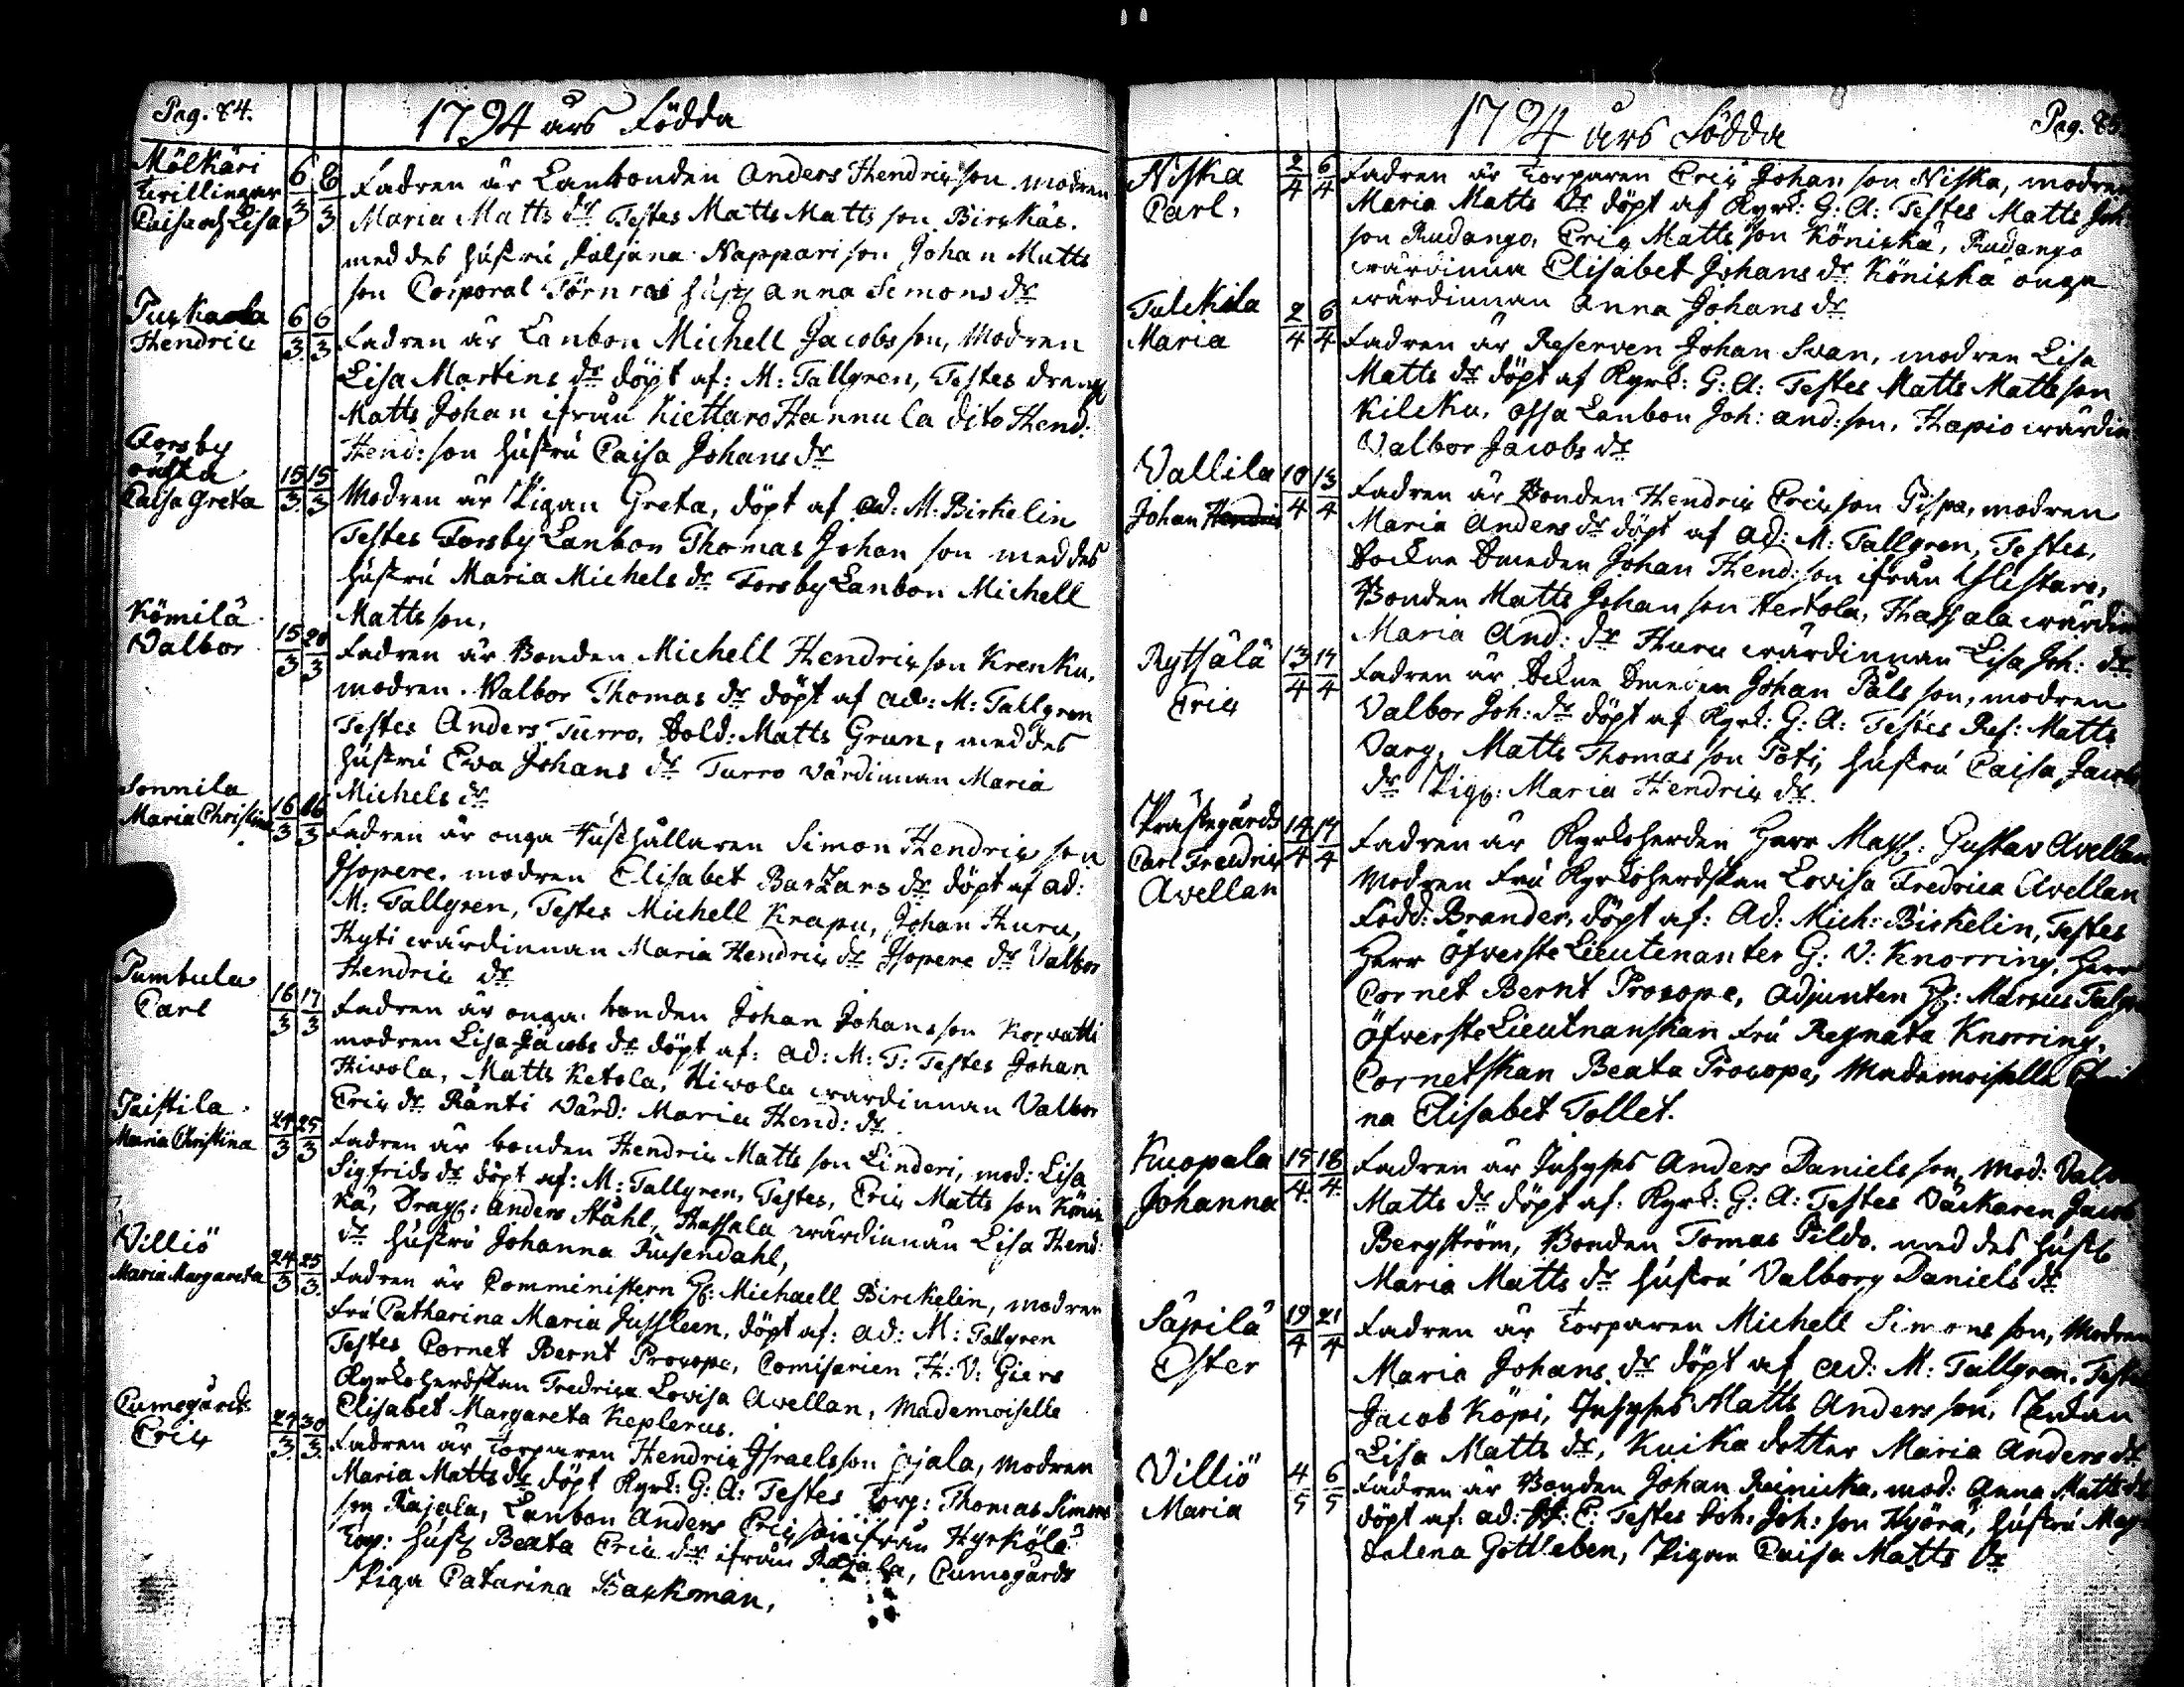 Pag. 84.
1794 års Födda
Mölkäri
6/3 6/3
Fadren är Lanbonden Anders Hendricson modren
Caisa och Lisa
Maria Matts dr Testes Matts Matts son Birkäs.
med des hustru Nappari son Johan Matts
son Corporal Törnros hust Anna Simons dr
Hendric
6/3 6/3
Fadren är Lanbon Michell Jacobs son, Modren
Lisa Martins dr döpt af: M: Tallgren, Testes dreng
Matts Johan ifrån Kiettaro Hannula dito Hend:
Hend: son hustru Caisa Johans dr
Forsby
Caisa Greta
15/3 15/3
Modren är Pigan Greta, döpt af Ad: M: Birkelin
Testes Forsby Lanbon Thomas Johan son med des
hustru Maria Michels dr Forsby Lanbon Michell
Matts son,
Kömilä
Valbor
15/3 20/3
Fadren är Bonden Michell Hendricson Krenku,
modren. Valbor Thomas dr döpt af Ad: M: Tallgren
Testes Anders Turro, Sold: Matts Grun, med des
hustru Eva Johans dr Turro värdinnan Maria
Michels dr
Sonnila
Maria Christina
16/3 16/3
Fadren är unga Hushållaren Simon Hendric son
Isopere. modren Elisabet dr döpt af Ad:
M: Tallgren, Testes Michell Krapu, Johan Huru,
Hyti wärdinnan Maria Hendric dr Isopere dr Valbor
Hendric dr
Pumbula
Carl
16/3 17/3
Fadren är unga bonden Johan Johansson Korvatti
modren Lisa Jacobs dr döpt af: Ad: M: T: Testes Johan
Hiwola, Matts Ketola, Hiwola wärdinnan Valbor
Eric dr Ränti Värd: Maria Hend: dr
Taistila
Maria Christina
24/3 25/3
Fadren är bonden Hendric Matts son Linderi, mod: Lisa
Sigfrids dr döpt af: M: Tallgren, Testes, Eric Matts son Könic
kä, Drag: Anders Ståhl, Hassala wärdinnan Lisa Hend:
dr hustru Johanna Rusendahl,
Villiö
Maria Margareta
24/3 25/3
Fadren är Comministern H: Michaell Birckelin, modren
Fru Catharina Maria Jusleen, döpt af: Ad: M: Tallgren
Testes Cornet Bernt Procope, Comisarien H: V: Giers
Kyrkoherdskan Fredrica Lovisa Avellan, Mademoiselle
Elisabet Margareta Keplerus.
Cumogårds
Eric
27/3 30/3
Fadren är Torparen Hendric Israelsson Ojala, modren
Maria Matts dr döpt Kyrk: G: A: Testes Torp: Thomas Simons
son Rajala, Lanbon Anders Ericson ifrån Hyrkölä
Torp: hust Beata Eric dr ifrån Rajala, Cumogårds
Piga Catarina Backman,
1794 års Födda
Pag. 85
Niska
Carl,
2/4 6/4
Fadren är Torparen Eric Johan son Niska, modren
Maria Matts dr döpt af Kyrk: G: A: Testes Matts Joh:
son Rudango, Eric Matts son Köniskä, Rudango
wärdinna Elisabet Johans dr Köniskä unga
wärdinnan Anna Johans dr
Tulckila
Maria
2/4 6/4
Fadren är Reserven Johan Svan, modren Lisa
Matts dr döpt af Kyrk: G: A: Testes Matts Matts son
Kilcku, Ossa Lanbon Joh: And: son, Hapio wärdin
Valbor Jacobs dr
Vallila
Johan
10/4 13/4
Fadren är Bonden Hendric Ericson Pispa, modren
Maria Anders dr döpt af Ad: M: Tallgren, Testes,
Sockne Smeden Johan Hend: son ifrån Ylistaro,
Bonden Matts Johan son Hertola, Hassala wärdin
Maria And: dr Huru wärdinnan Lisa Joh: dr
Rytsälä
Eric
13/4 14/4
Fadren är Sockne Smeden Johan Påls son, modren
Valbor Joh: dr döpt af Kyrk: G: A: Testes Res: Matts
Varg, Matts Thomas son Poti, hustru Caisa Jacobs
dr Pig: Maria Hendric dr.
Prästegårds
Carl Fredric
Avellan
14/4 17/4
Fadren är Kyrkoherden Herr Mag: Gustav Avellan
Modren Fru Kyrkoherdskan Lovisa Fredrica Avellan
Född: Brander, döpt af: Ad: Mich: Birkelin, Testes
Herr Öfverste Lieutenanten G: V: Knorring, Herr
Cornet Bernt Procope, Adjuncten H: Marcus
Öfverste Lieutnanskan Fru Regnata Knorring,
Cornetskan Beata Procope, Mademoiselle
na Elisabet Tollet.
Kuopala
Johanna
15/4 18/4
Fadren är Inhyses Anders Daniels son, Mod:
Matts dr döpt af: Kyrk: G: A: Testes Väskaren Jacob
Bergström, Bonden Tomas Pildo. med des hust
Maria Matts dr hustru Valborg Daniels dr
Säpilä
Ester
19/4 21/4
Fadren är Torparen Michell Simons son, Modren
Maria Johans dr döpt af Ad: M: Tallgren. Testes
Jacob Köpi, Inhyses Matts Anders son, Enkan
Lisa Matts dr, Kuika dotter Maria Anders dr
Villiö
Maria
4/5 6/5
Fadren är Bonden Johan Reinicka, mod: Anna Matts dr
döpt af: Ad: Testes Joh: Joh: son Hyörä, hustru Mag
dalena Gottleben, Pigan Caisa Matts dr